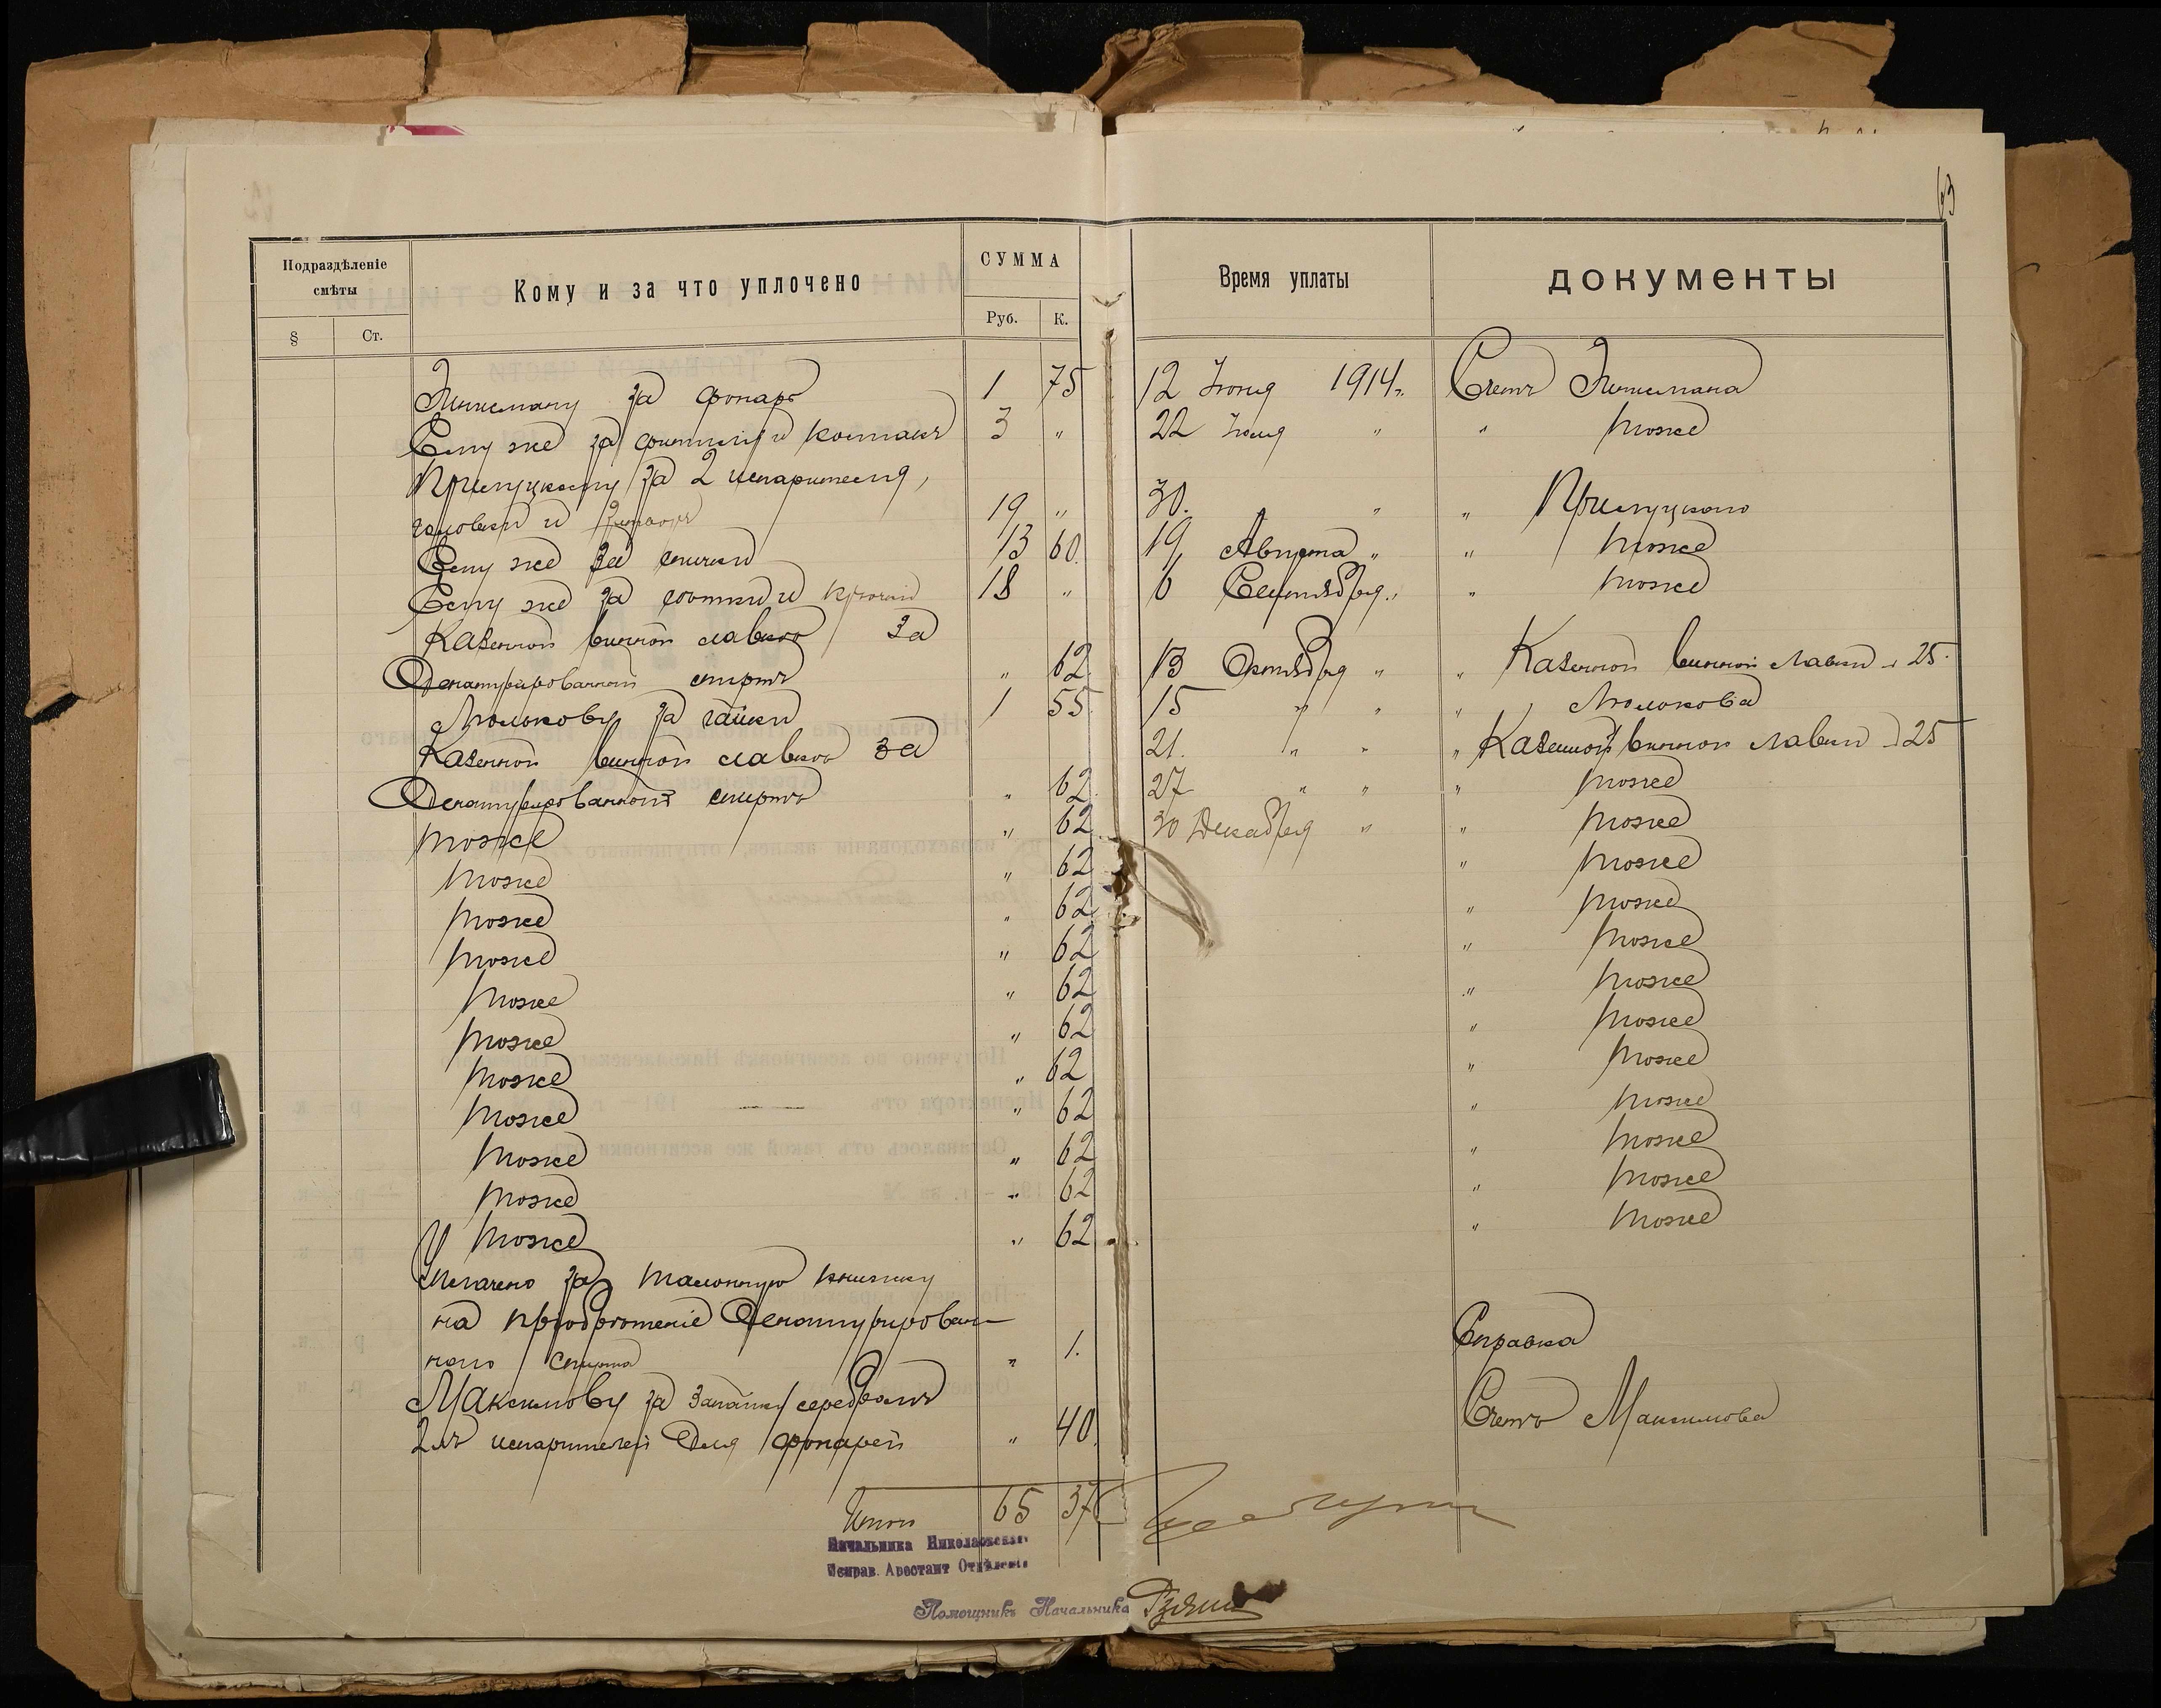 63
Подраздѣленіе смѣты
Кому и за что уплочено
СУММА
Время уплаты
ДОКУМЕНТЫ
§ Ст. Руб. К.
за фонарь 1 75 12 Іюня 1914 г. Счетъ
Ему же за фитиля и колпакъ 3 " 22 Іюля " " тоже
Прилуцкому за 2 испарителя,
головки и 19 " 30. " " Прилуцкого
Ему же за спички 13 60. 19 Августа " " тоже
Ему же за сотки и крючки 18 " 6 Сентября " " тоже
Казенной винной лавкѣ за
Денатурированный спиртъ " 62 13 Октября " " Казенной винной лавки 25
Молокову за гайки 1 55 15 " " " Молокова
Казенной винной лавкѣ за 21. " " " Казенной винной лавки 25
Денатурированный спиртъ " 62. 27 " " " тоже
тоже " 62 30 Декабря " " тоже
тоже " 62 " тоже
тоже " 62 " тоже
тоже " 62 " тоже
тоже " 62 " тоже
тоже " 62 " тоже
тоже " 62 " тоже
тоже " 62 " тоже
тоже " 62 " тоже
тоже " 62 " тоже
тоже " 62 " тоже
Уплачено за талонную книжку
на пріобрѣтеніе Денатурирован-
наго спирта " 1. Справка
Максимову за запайку серебромъ
2хъ испарителей для фонарей " 40. Счетъ Максимова
Итого 65 37
Начальника Николаевскаго
Исправ. Арестант Отдѣленія
Помощникъ Начальника